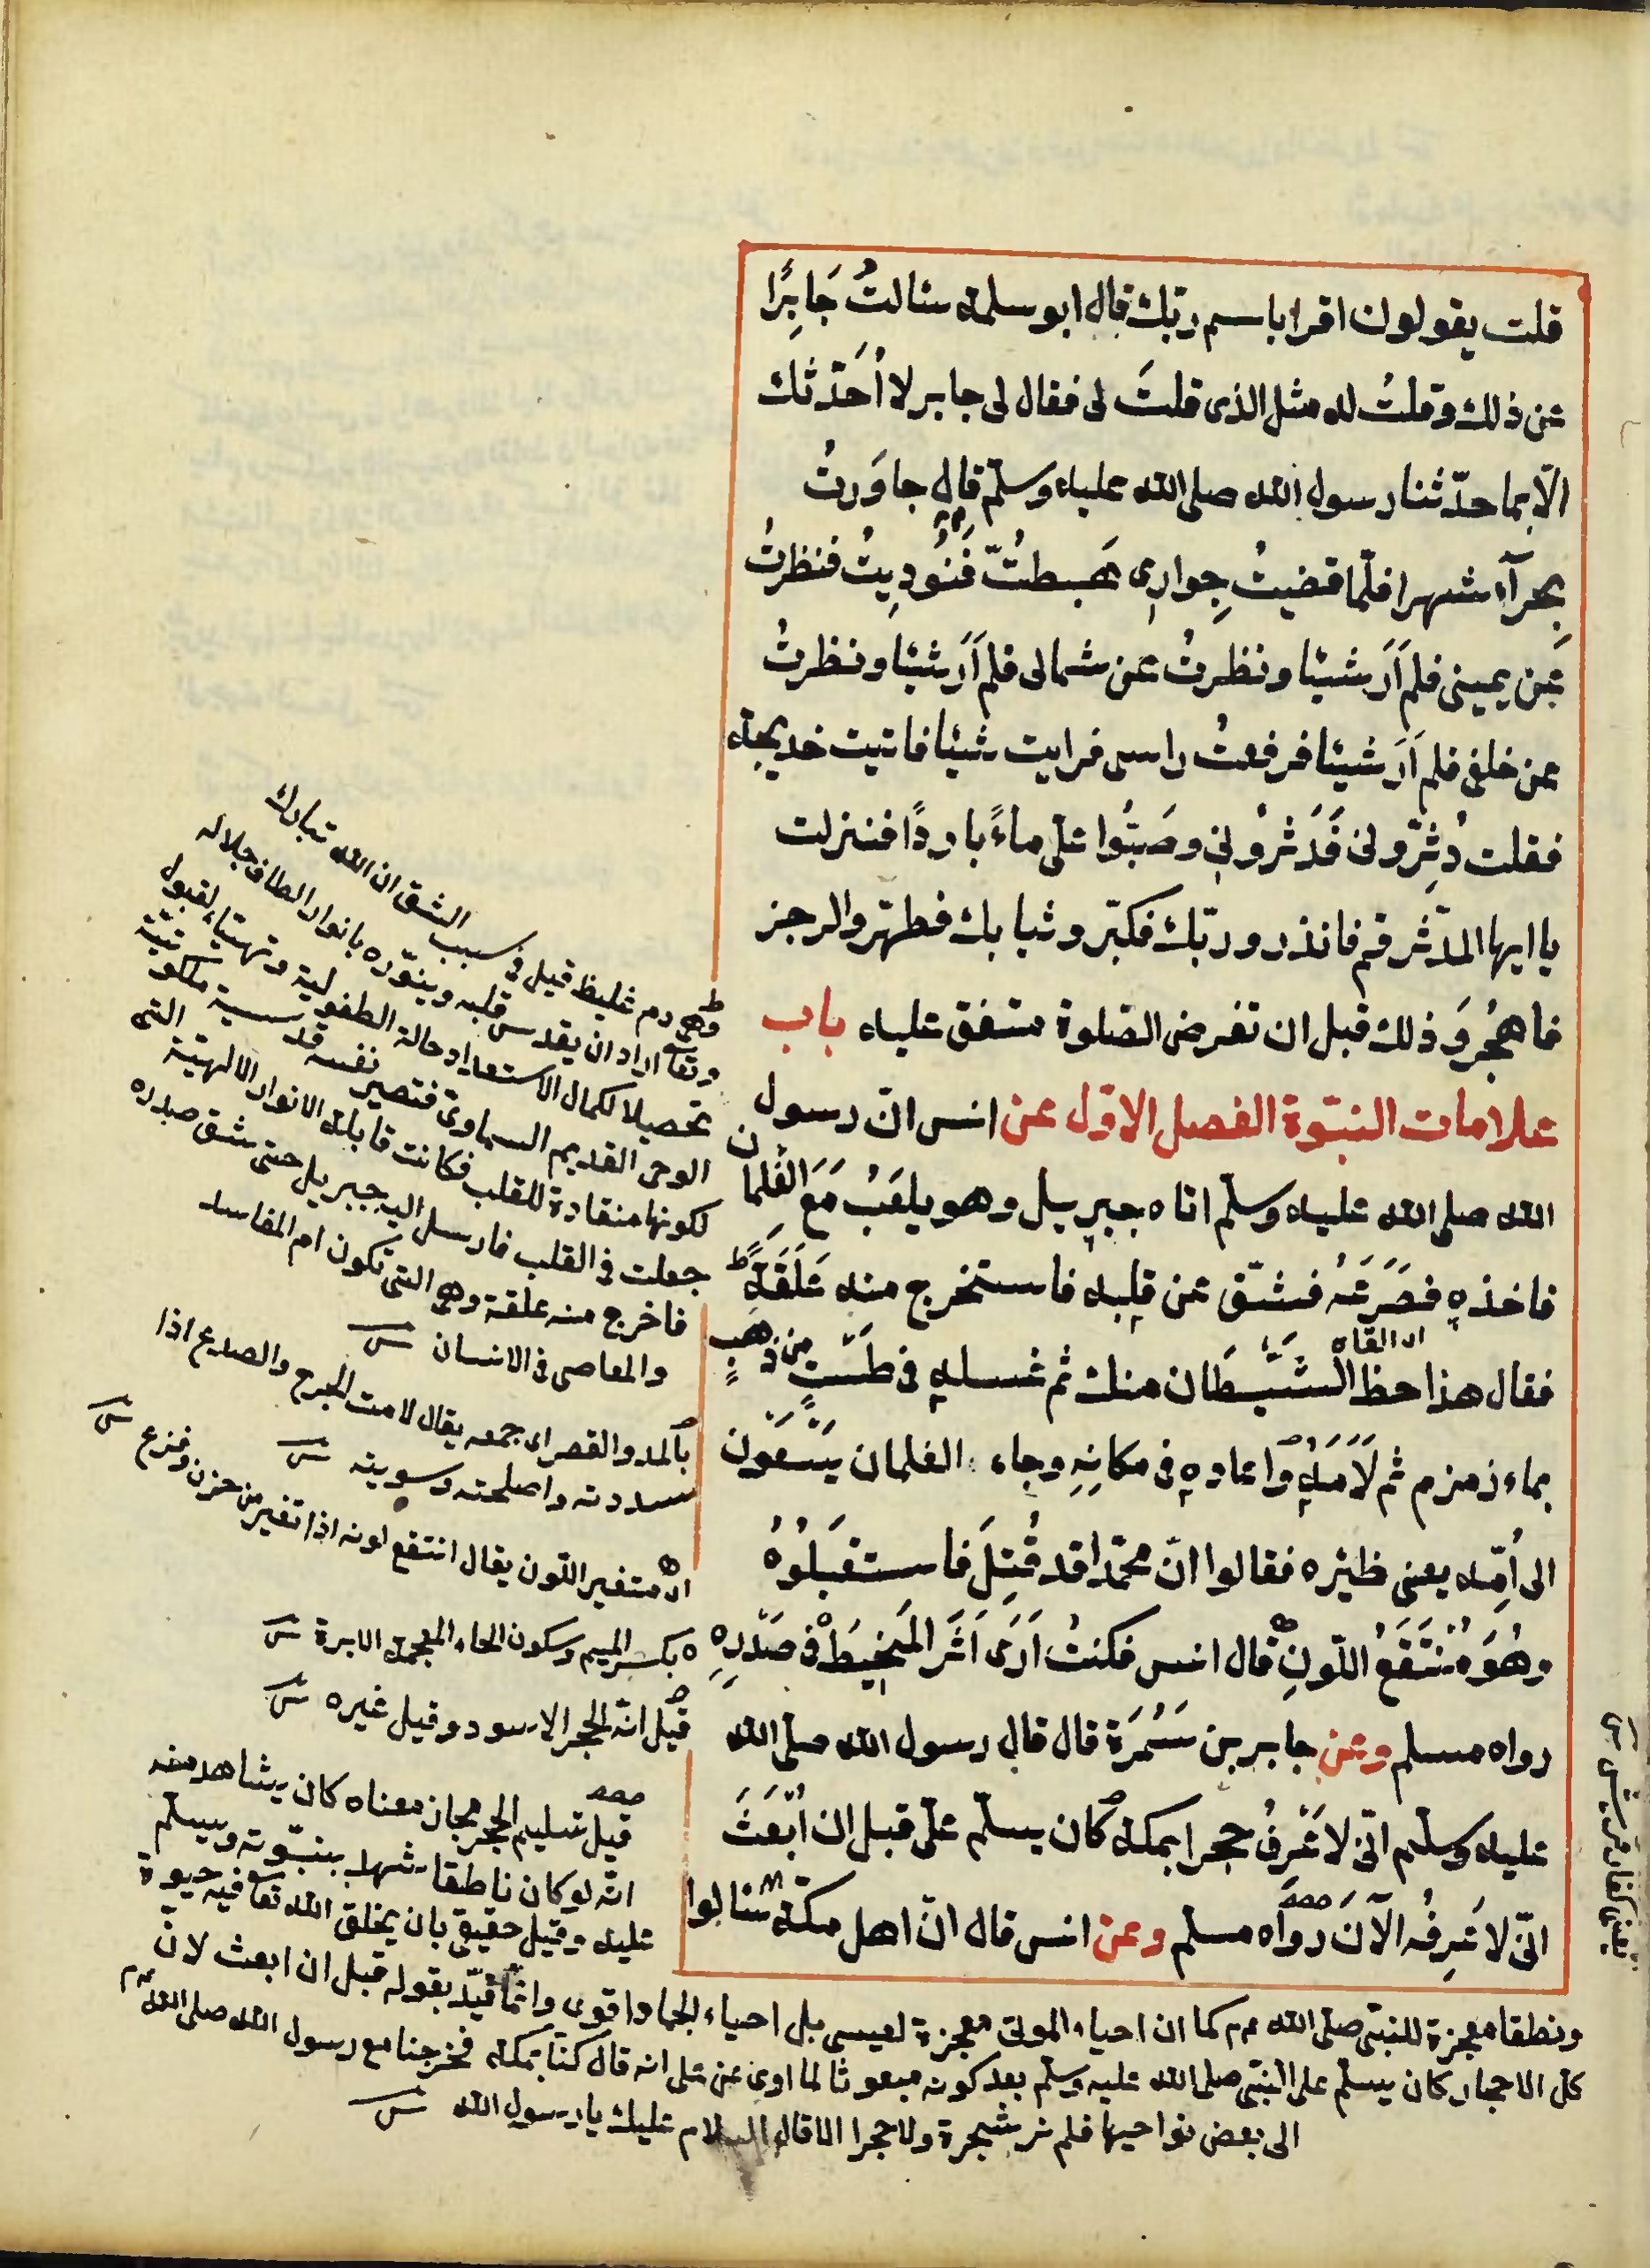 قلت يقولون اقرا باسم ربّك قال ابو سلمة سئالتُ جَابِرًا
عن ذلك وقلتُ له مثل الذى قلتَ لى فقال لى جابر لا اُحَدّثك
الّا بما حدّثنا رسول الله صلى الله عليه وسلّم قال جاوَرتُ
بِحرآء شهرا فلّما قضيتُ جِوارى هَبطتُ فَنُودِيتُ فنظرتُ
عن يمينى فلم اَرَ شيئا ونظرتُ عن شمالى فلم اَرَ شيئا ونظرتُ
عن خلفى فلم اَرَ شيئا فرفعتُ راسى فرايت شيئا فاتيت خديجة
فقلت دثِّرونى فَدَثرُونى وصَبُّوا علىّ ماءً باردًا فنزلت
يا ايها المدّثر قم فانذر وربّك فكبّر وثيابك فطهّر والرجز
فاهجُر وَذلك قبل ان تفرض الصّلوة متفق عليه باب
علامات النبّوة الفصل الاوّل عن انس انّ رسول
الله صلى الله عليه وسلّم اتاه جبريل وهو يلعَبُ مَعَ الغلمان
فاخذه فصَرَعَهُ فشّق عن قلبه فاستخرج منه عَلَقَةً
فقال هذا حظ الشَّيطَان منك ثم غسله فى طَستٍ من ذهبٍ
اى القاه
بماء زمزم ثم لَاَمَهُ واعاده فى مكانِهِ وجاء الغلمان يَسْعَون
الى اُمّه يعنى ظئره فقالوا انّ محمّدا قد قُتِلَ فاستقبلُوُه
وهُوَ مُنتَقَعُ اللّونِ قال انس فكنتُ اَرَى اَثَرَ المَخِيطَ فى صَدْرِهِ
رواه مسلم وعن جابر بن سَمُرَة قال قال رسول الله صلى الله
عليه وسلّم انّى لاَعْرِفُ حجرا بمكة كان يسلّم علىّ قبل ان اُبْعَثَ
انّى لاَعْرِفُه الآنَ رواه مسلم وعن انس قال انّ اهل مكّة سئالوا
هى دم غليظ قيل فى سبب الشق ان الله تبارك
وتعا اراد ان يقدس قلبه وينوّره بانوار الطاف جلاله
تحصيلا لكمال الاستعداد حالة الطفولية وتهيئاء لقبول
الوحى القديم السماوى فتصير نفسه قدسية ملكوتيّة
لكونها منقادة للقلب فكانت قابلة الانوار الالهيّة التى
جعلت فى القلب فارسل اليه جبريل حتى شق صدره
فاخرج منه علقة وهى التى تكون ام المفاسد
والمعاصى فى الانسان ش
بالمد والقصر اى جمعه يقال لامت الجرح والصدع اذا
سددته واصلحته وسويته ش
اى متغير اللّون يقال انتقع لونه اذا تغير من حزن وفزع ش
بكسر الميم وسكون الخاء المعجمة الابرة ش
قيل انّه الحجر الاسود وقيل غيره ش
قيل تسليم الحجر مجاز معناه كان يشاهد منه
انّه لو كان ناطقا شهد بنبّوته ويسلم
عليه وقيل حقيقى بان يخلق الله تعا فيه حيوة
ونطقا معجزة للنبى صلى الله عم كما ان احياء الموتى معجزة لعيسى بل احياء الجماد اقوى وانّما قيّد بقوله قبل ان ابعث لانّ
كل الاحجار كان يسلّم على النبى صلى الله عليه وسلّم بعد كونه مبعوثا لما روى عن على انه قال كنّا بمكة فخرجنا مع رسول الله صلى الله عم
الى بعض نواحيها فلم نر شجرة ولا حجرا الا قال السلام عليك يا رسول الله ش
يعنى كفار قريش ش